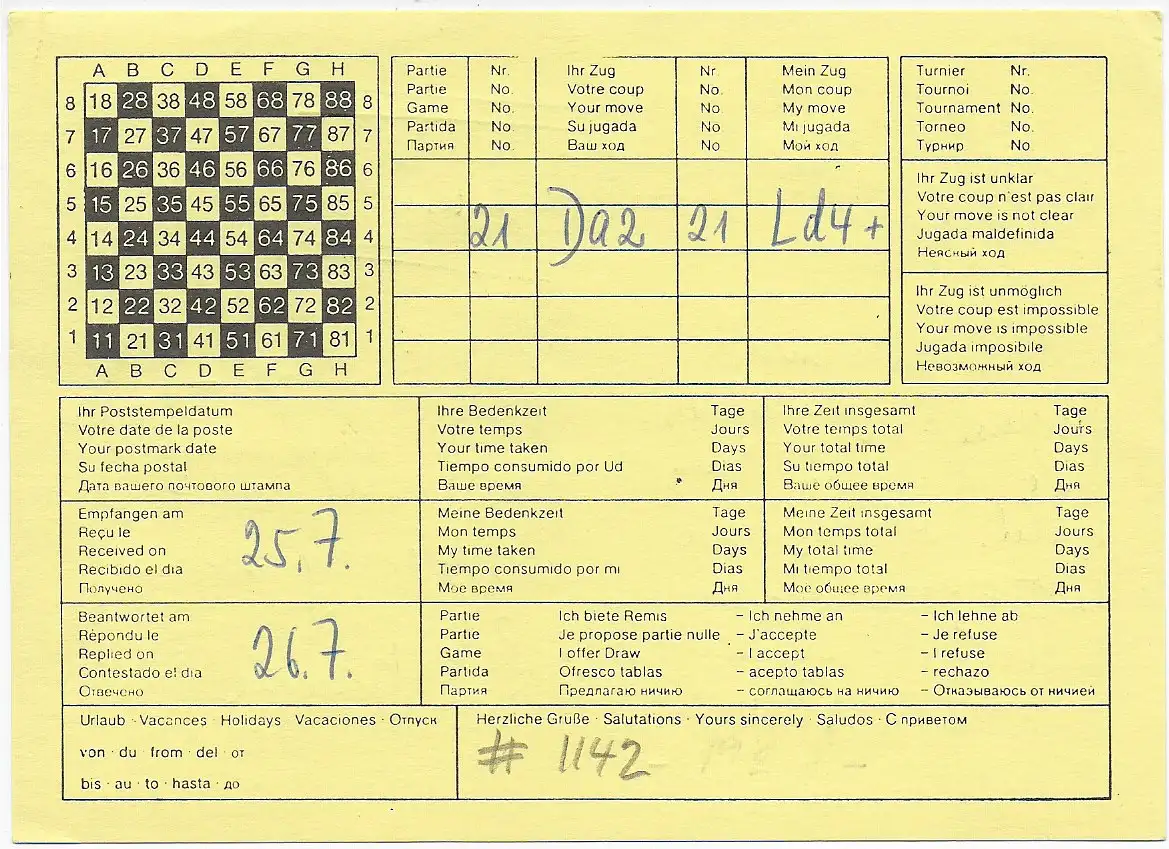 A B C D E F G H
8 18 28 38 48 58 68 78 88 8
7 17 27 37 47 57 67 77 87 7
6 16 26 36 46 56 66 76 86 6
5 15 25 35 45 55 65 75 85 5
4 14 24 34 44 54 64 74 84 4
3 13 23 33 43 53 63 73 83 3
2 12 22 32 42 52 62 72 82 2
1 11 21 31 41 51 61 71 81 1
A B C D E F G H
Partie Nr. Ihr Zug Nr. Mein Zug
Partie No. Votre coup No. Mon coup
Game No. Your move No. My move
Partida No. Su jugada No Mi jugada
Партия No. Ваш ход No Мой ход
21 Da2 21 Ld4+
Turnier Nr.
Tournoi No.
Tournament No.
Torneo No.
Турнир No
Ihr Zug ist unklar
Votre coup n'est pas clair
Your move is not clear
Jugada maldefinida
Неясный ход
Ihr Zug ist unmöglich
Votre coup est impossible
Your move is impossible
Jugada imposibile
Невозможный ход
Ihr Poststempeldatum
Votre date de la poste
Your postmark date
Su fecha postal
Дата вашего почтового штампа
Ihre Bedenkzeit Tage
Votre temps Jours
Your time taken Days
Tiempo consumido por Ud Dias
Ваше время Дня
Ihre Zeit insgesamt Tage
Votre temps total Jours
Your total time Days
Su tiempo total Dias
Ваше общее время Дня
Empfangen am
Reçu le
Received on
Recibido el dia
Получено
25.7.
Meine Bedenkzeit Tage
Mon temps Jours
My time taken Days
Tiempo consumido por mi Dias
Мое время Дня
Meine Zeit insgesamt Tage
Mon temps total Jours
My total time Days
Mi tiempo total Dias
Мое общее время Дня
Beantwortet am
Répondu le
Replied on
Contestado el dia
Отвечено
26.7.
Partie Ich biete Remis - Ich nehme an - Ich lehne ab
Partie Je propose partie nulle - J'accepte - Je refuse
Game I offer Draw - I accept - I refuse
Partida Ofresco tablas - acepto tablas - rechazo
Партия Предлагаю ничию - соглащаюсь на ничию - Отказываюсь от ничией
Urlaub · Vacances · Holidays · Vacaciones · Отпуск
von · du · from · del · от
bis · au · to · hasta · до
Herzliche Gruße · Salutations · Yours sincerely · Saludos · С приветом
# 1142